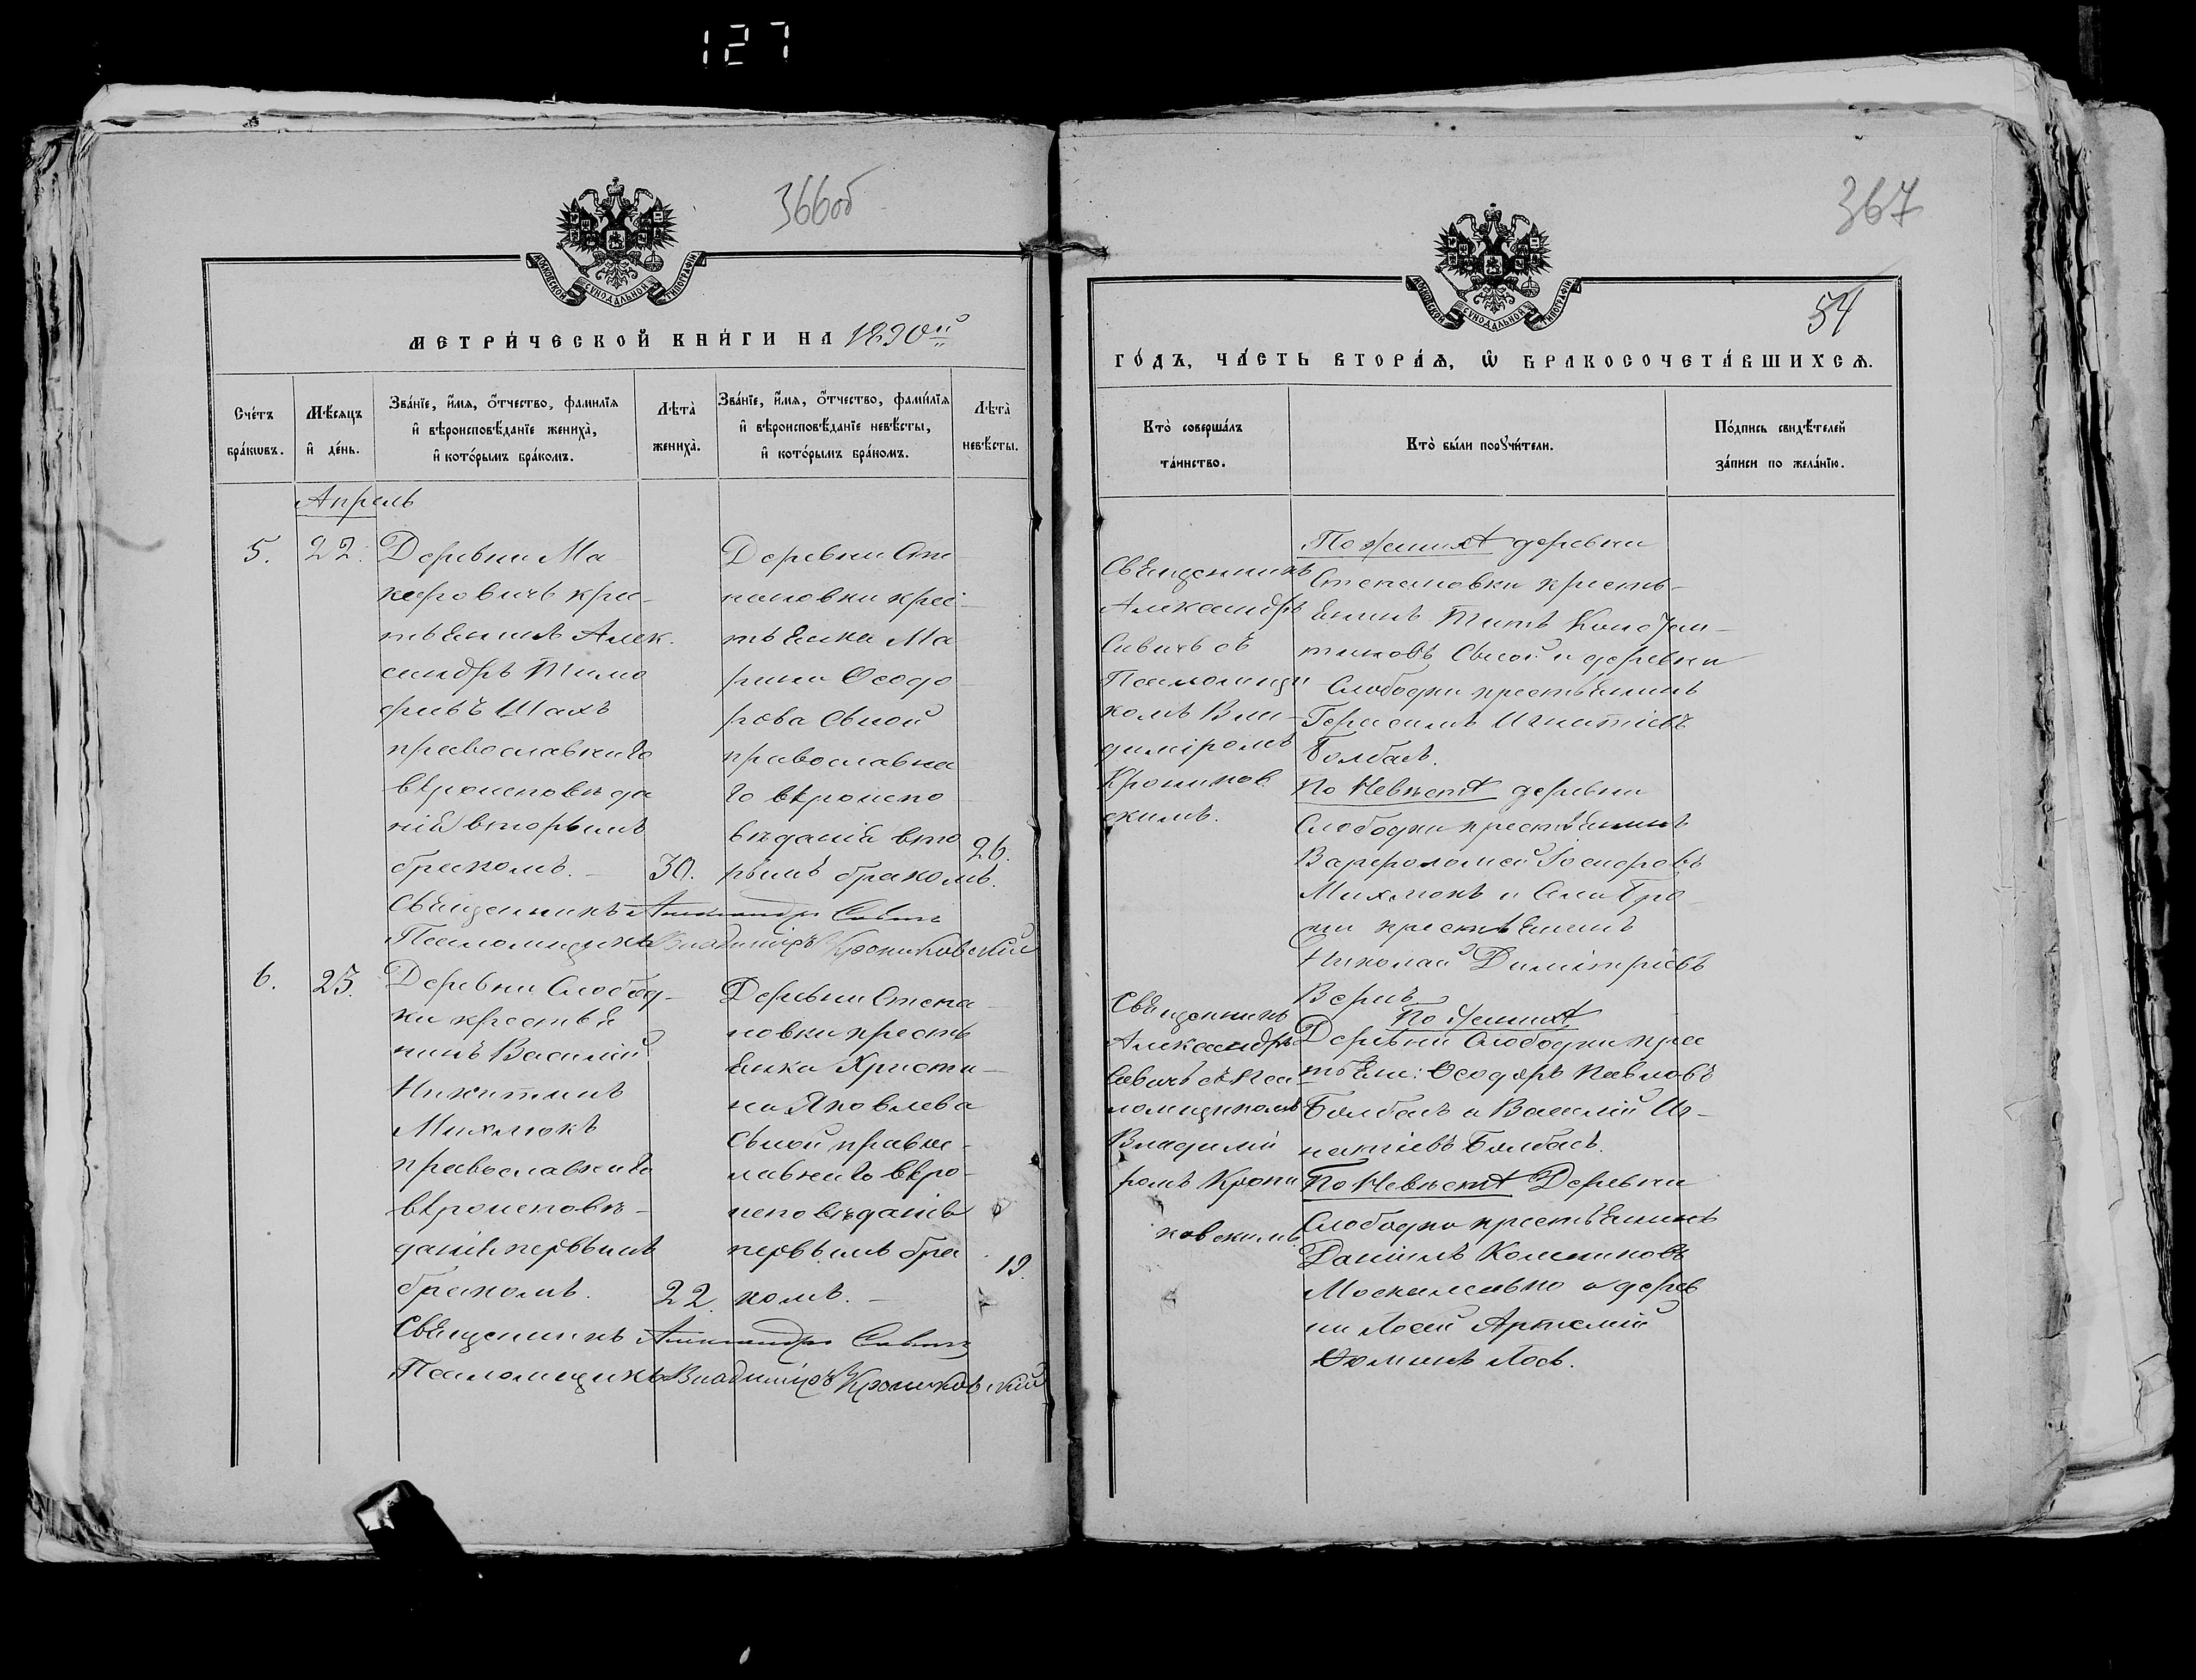 127
366об
МОСКОВСКОЙ СѴНОДАЛЬНОЙ ТИПОГРАФІИ
МЕТРИ́ЧЕСКОЙ КНИ́ГИ НА 1890й
Сче́тъ бра́кωвъ.
Мѣ́сяцъ и҆ де́нь.
Зва́нїе, и҆́мя, ѻ҆́тчество, фами́лїя
и҆ вѣроисповѣ́данїе жениха̀,
и҆ кото́рымъ бра́комъ.
Лѣта̀ жениха̀.
Зва́нїе, и҆́мя, ѻ҆́тчество, фами́лїя
и҆ вѣроисповѣ́данїе невѣ́сты,
и҆ кото́рымъ бра́комъ.
Лѣта̀ невѣ́сты.
Апрель
5.
22.
Деревни Ма
каровичъ крес-
тьянинъ Алек.
сандръ Тимо
феевъ Шахъ
православнаго
вѣроисповѣда
нія вторымъ
бракомъ.
30.
Деревни Сте
пановки крес-
тьянка Ма
рина Ѳеодо
рова Свиой
православна
го вѣроиспо
вѣданія вто
рымъ бракомъ.
26.
Священникъ Александръ Савичъ
Псаломщикъ Владиміръ Крониковскій
6.
25.
Деревни Слобод-
ки крестья
нинъ Василій
Никитинъ
Михлюкъ
православнаго
вѣроисповѣ-
данія первымъ
бракомъ.
22.
Деревни Степа-
новки кресть
янка Христи-
на Яковлева
Свиой правос-
лавнаго вѣро-
исповѣданія
первымъ бра
комъ.
19.
Священникъ Александръ Савичъ
Псаломщикъ Владиміръ Крониковскій
367
МОСКОВСКОЙ СѴНОДАЛЬНОЙ ТИПОГРАФІИ
54
ГО́ДЪ, ЧА́СТЬ ВТОРА́Ѧ, Ѽ БРАКОСОЧЕТА́ВШИХСѦ.
Кто̀ соверша́лъ
та́инство.
Кто̀ бы́ли порꙋчи́тели.
По́дпись свидѣ́телей
за́писи по жела́нїю.
Священникъ
Александръ
Савичъ съ
Псаломщи
комъ Вла-
диміромъ
Кроников
скимъ.
По женихѣ деревни
Степановки кресть-
янинъ Титъ
Свиой и деревни
Слободки крестьянинъ
Герасимъ Игнатіевъ
Болбасъ.
По Невѣстѣ деревни
Слободки крестьянинъ
Варфоломей Іосифовъ
Михлюкъ и
крестьянинъ
Николай Димитріевъ
Священникъ
Александръ
Савичъ съ Пса
ломщикомъ
Владимі
ромъ Крони
ковскимъ
По Женихѣ
Деревни Слободки крес
тьяне: Ѳеодоръ Павловъ
Болбасъ и Василій Иг-
натіевъ Болбасъ.
По Невѣстѣ Деревни
Слободки крестьянинъ
Даніилъ
и дерев
ни Лосей Артемій
Ѳоминъ Лось.